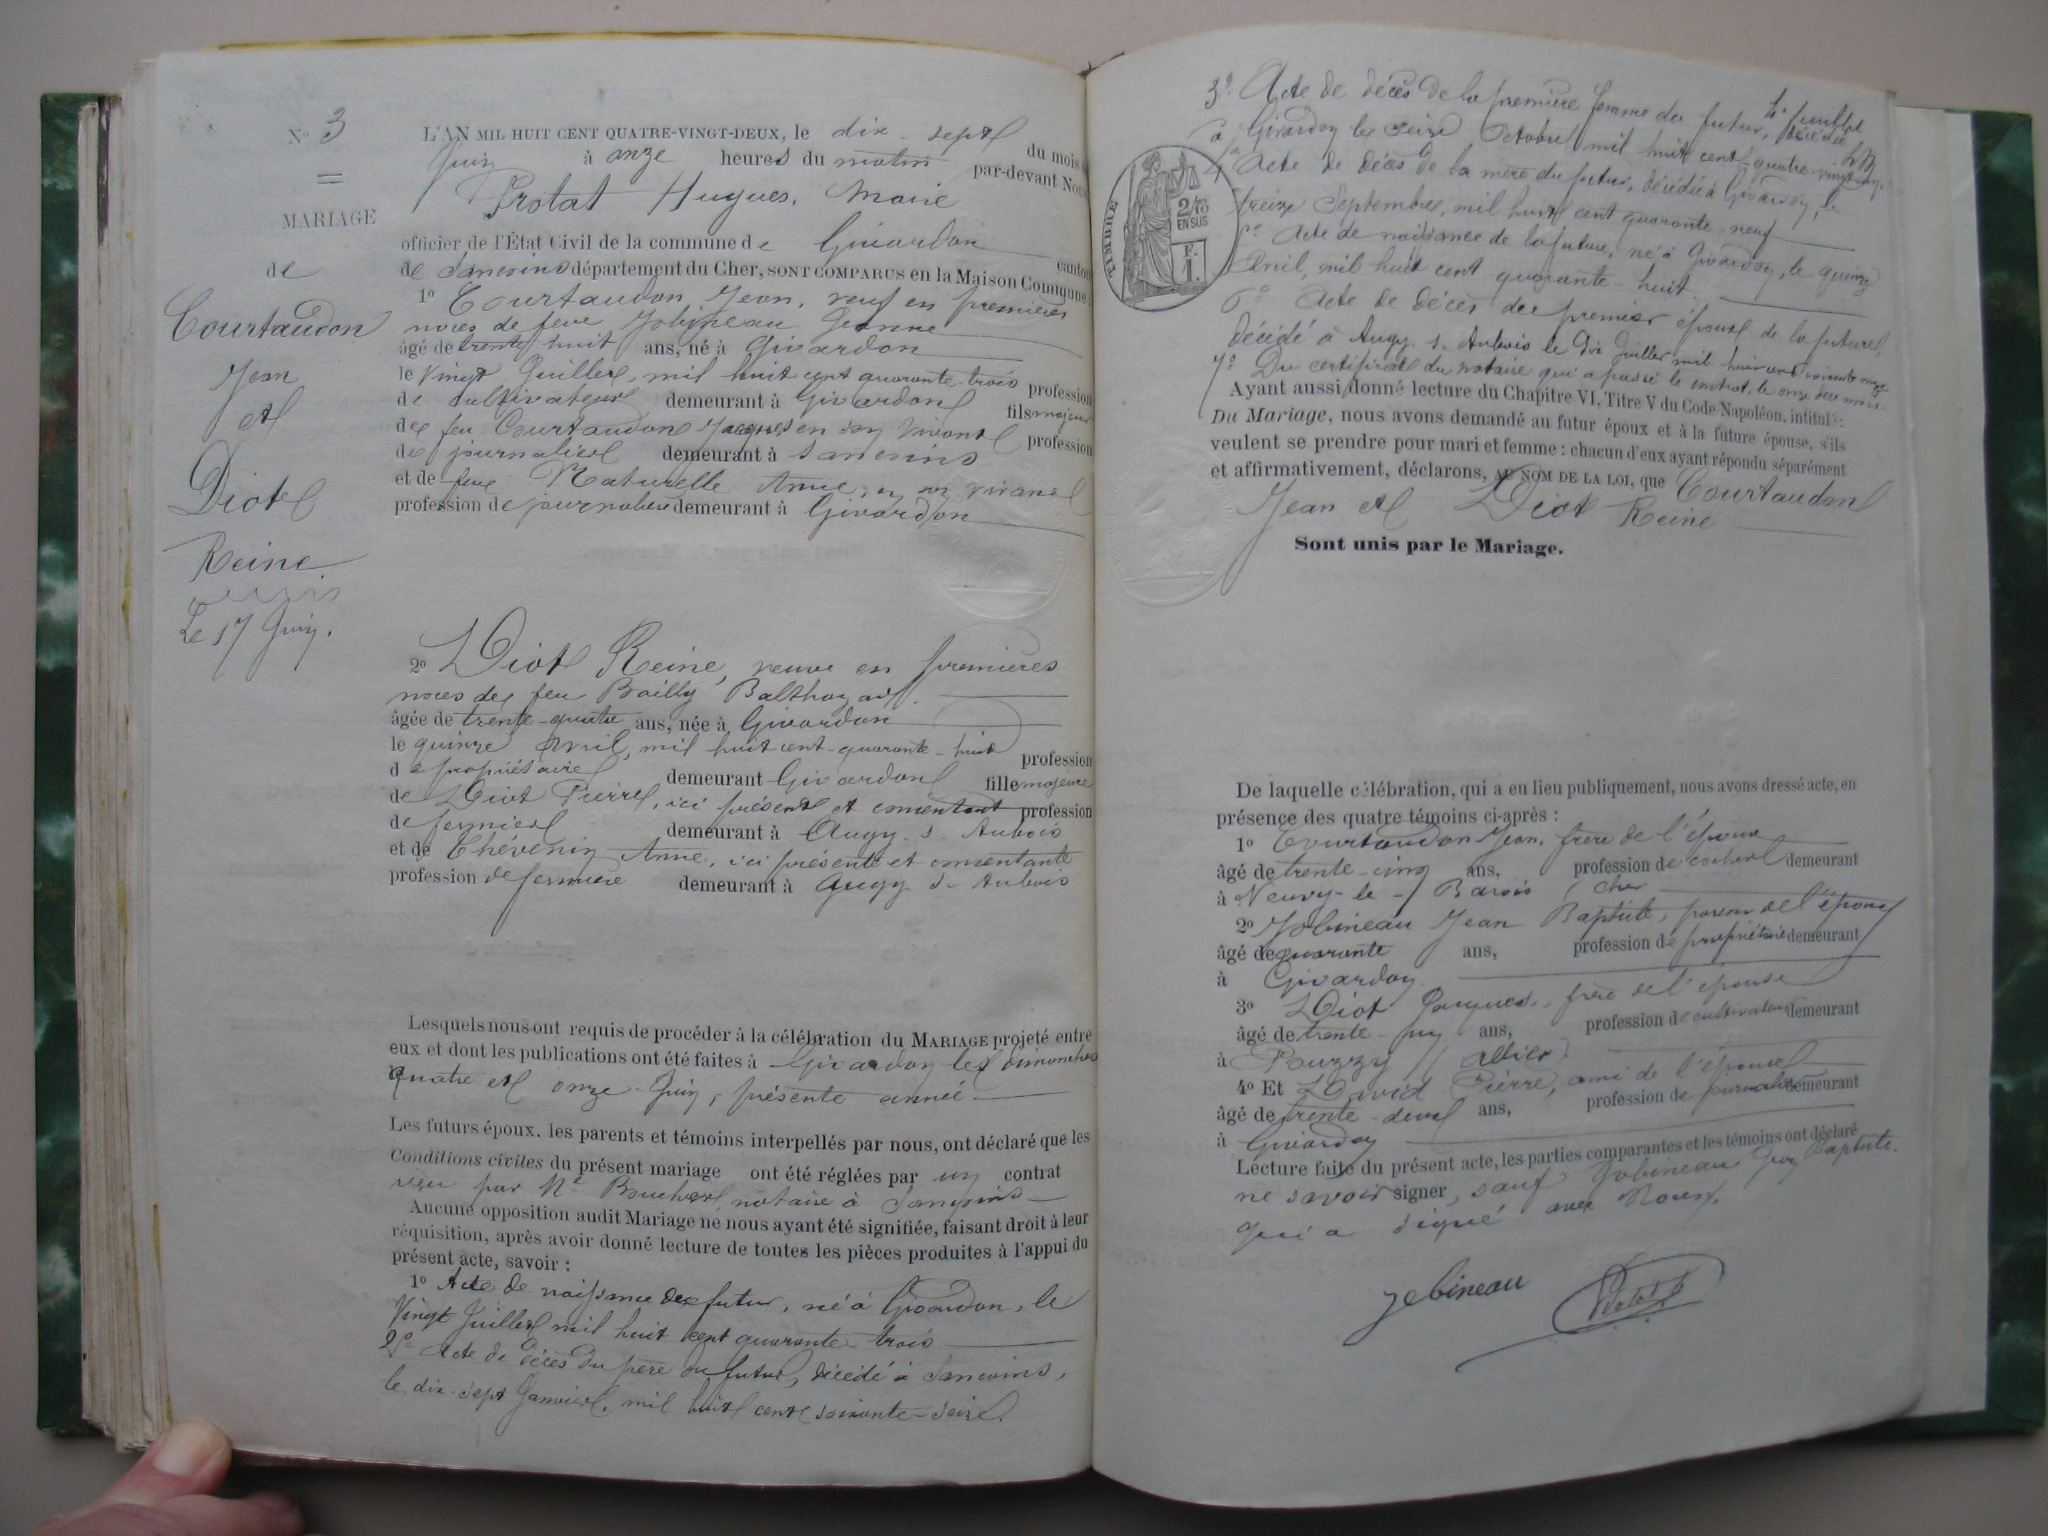 N° 3
MARIAGE
de
Courtaudon
Jean
et
Diot
Reine
Le 17 Juin.
L'AN MIL HUIT CENT QUATRE-VINGT-DEUX, le dix-sept du mois de
Juin à onze heures du matin par-devant Nous
Protat Hugues, Marie
officier de l'État Civil de la commune de Givardon canton
de Sancoins département du Cher, SONT COMPARUS en la Maison Commune :
1° Courtaudon Jean, veuf en premières
noces de feue Jobineau Jeanne
âgé de trente huit ans, né à Givardon
le vingt Juillet, mil huit cent quarante-trois profession
de cultivateur demeurant à Givardon fils majeur
de feu Courtaudon Jacques en son vivant profession
de journalier demeurant à Sancoins
et de feue Naturelle Anne, en son vivant
profession de journalière demeurant à Givardon
2° Diot Reine, veuve en premières
noces de feu Bailly Balthazard.
âgée de trente-quatre ans, née à Givardon
le quinze Avril, mil huit cent-quarante-huit profession
de propriétaire demeurant Givardon fille majeure
de Diot Pierre, ici présent et consentant profession
de fermier demeurant à Augy-s-Aubois
et de Thévenin Anne, ici présente et consentante
profession de fermière demeurant à Augy-s-Aubois
Lesquels nous ont requis de procéder à la célébration du MARIAGE projeté entre
eux et dont les publications ont été faites à Givardon les dimanches
quatre et onze Juin, présente année
Les futurs époux. les parents et témoins interpellés par nous, ont déclaré que les
Conditions civiles du présent mariage ont été réglées par un contrat
reçu par Me notaire à Sancoins
Aucune opposition audit Mariage ne nous ayant été signifiée, faisant droit à leur
réquisition, après avoir donné lecture de toutes les pièces produites à l'appui du
présent acte, savoir :
1° Acte de naissance du futur, né à Givardon, le
Vingt Juillet mil huit cent quarante-trois
2° Acte de décès du père du futur, décédé à Sancoins,
le dix-sept Janvier, mil huit cent soixante-seize.
3° Acte de décès de la première femme du futur, décédée
à Givardon le seize Octobre mil huit cent-quatre-vingt-un.
4° Acte de décès de la mère du futur, décédée à Givardon, le
treize Septembre, mil huit cent quarante-neuf
5° Acte de naissance de la future, née à Givardon, le quinze
Avril, mil huit cent quarante-huit.
6° Acte de décès du premier époux de la future,
décédé à Augy-s-Aubois le dix Juillet mil huit cent soixante onze
7° Du certificat du notaire qui a passé le contrat, le onze de ce mois.
TIMBRE
2/10
EN SUS
F.
1.
Ayant aussi donné lecture du Chapitre VI, Titre V du Code Napoléon, intitulé :
Du Mariage, nous avons demandé au futur époux et à la future épouse, s'ils
veulent se prendre pour mari et femme : chacun d'eux ayant répondu séparément
et affirmativement, déclarons, AU NOM DE LA LOI, que Courtaudon
Jean et Diot Reine
Sont unis par le Mariage.
De laquelle célébration, qui a eu lieu publiquement, nous avons dressé acte, en
présence des quatre témoins ci-après :
1° Courtaudon Jean, frère de l'époux
âgé de trente-cinq ans, profession de cocher demeurant
à Neuvy-le-Barois (Cher
2° Jobineau Jean Baptiste, parent de l'époux
âgé de quarante ans, profession de propriétaire demeurant
à Givardon
3° Diot Jacques, frère de l'épouse
âgé de trente-un ans, profession de cultivateur demeurant
à Pouzzy (Allier)
4° Et David Pierre, ami de l'épouse
âgé de trente-deux ans, profession de journalier demeurant
à Givardon
Lecture faite du présent acte, les parties comparantes et les témoins ont déclaré
ne savoir signer, sauf Jobineau Jean Baptiste.
qui a signé avec Nous.
Jobineau